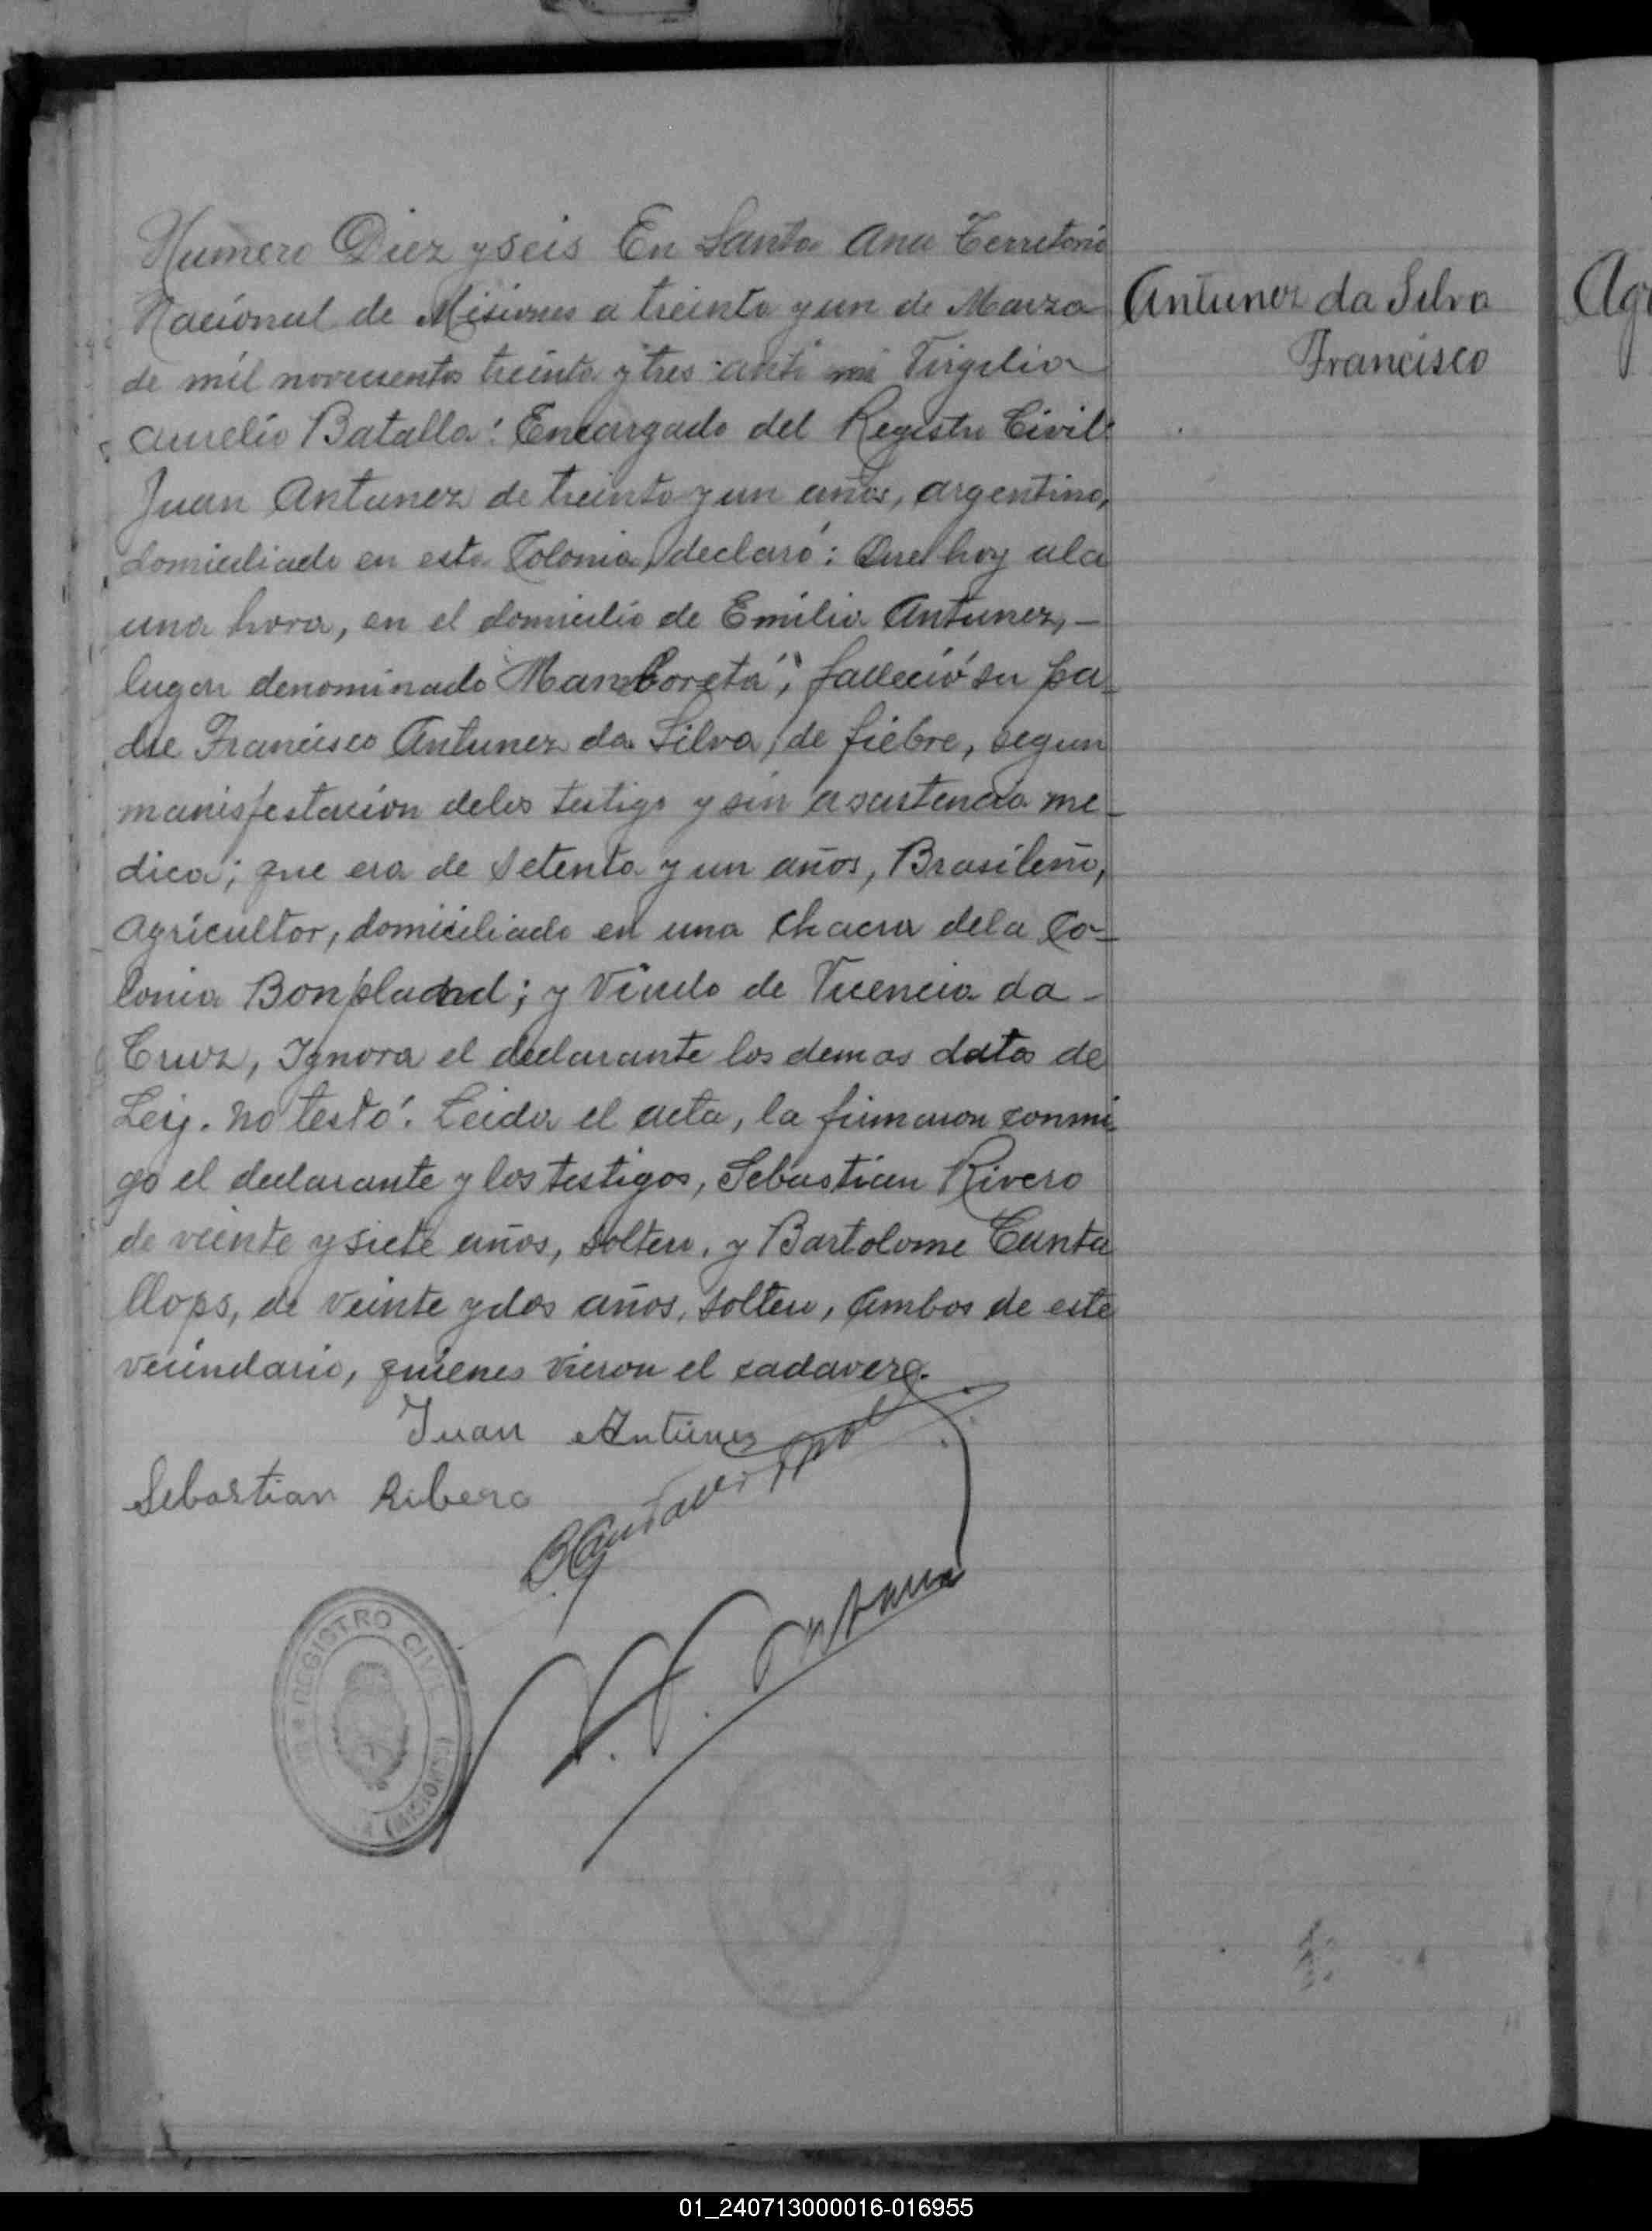 Numero Diez y seis En Santa Ana Territorio
Nacional de Misiones a treinta y un de Marzo
de mil novecientos treinta y tres ante mi Virgilio
Aurelio Batalla: Encargado del Registro Civil:
Juan Antunez de treinta y un años, argentino,
domiciliado en esta Colonia, declaró: Que hoy a la
una hora, en el domicilio de Emilio Antunez,-
lugar denominado "Mamboretá", falleció su pa-
dre Francisco Antunez da Silva, de fiebre, segun
manisfestacion delos testigo y sin asistencia me-
dica; que era de setenta y un años, Brasileño,
agricultor, domiciliado en una chacra dela Co-
lonia Bonpland; y Viudo de Vicencia da -
Cruz, Ignora el declarante los demas datos de
Ley. no testó. Leida el acta, la firmaron conmi-
go el declarante y los testigos, Sebastian Rivero
de veinte y siete años, soltero, y Bartolome Canta
llops, de veinte y dos años, soltero, ambos de este
vecindario, quienes vieron el cadaver.
Juan Antunez
Sebastian Ribero
REGISTRO CIVIL
(MISIONES)
Antunez da Silva
Francisco
01_240713000016-016955